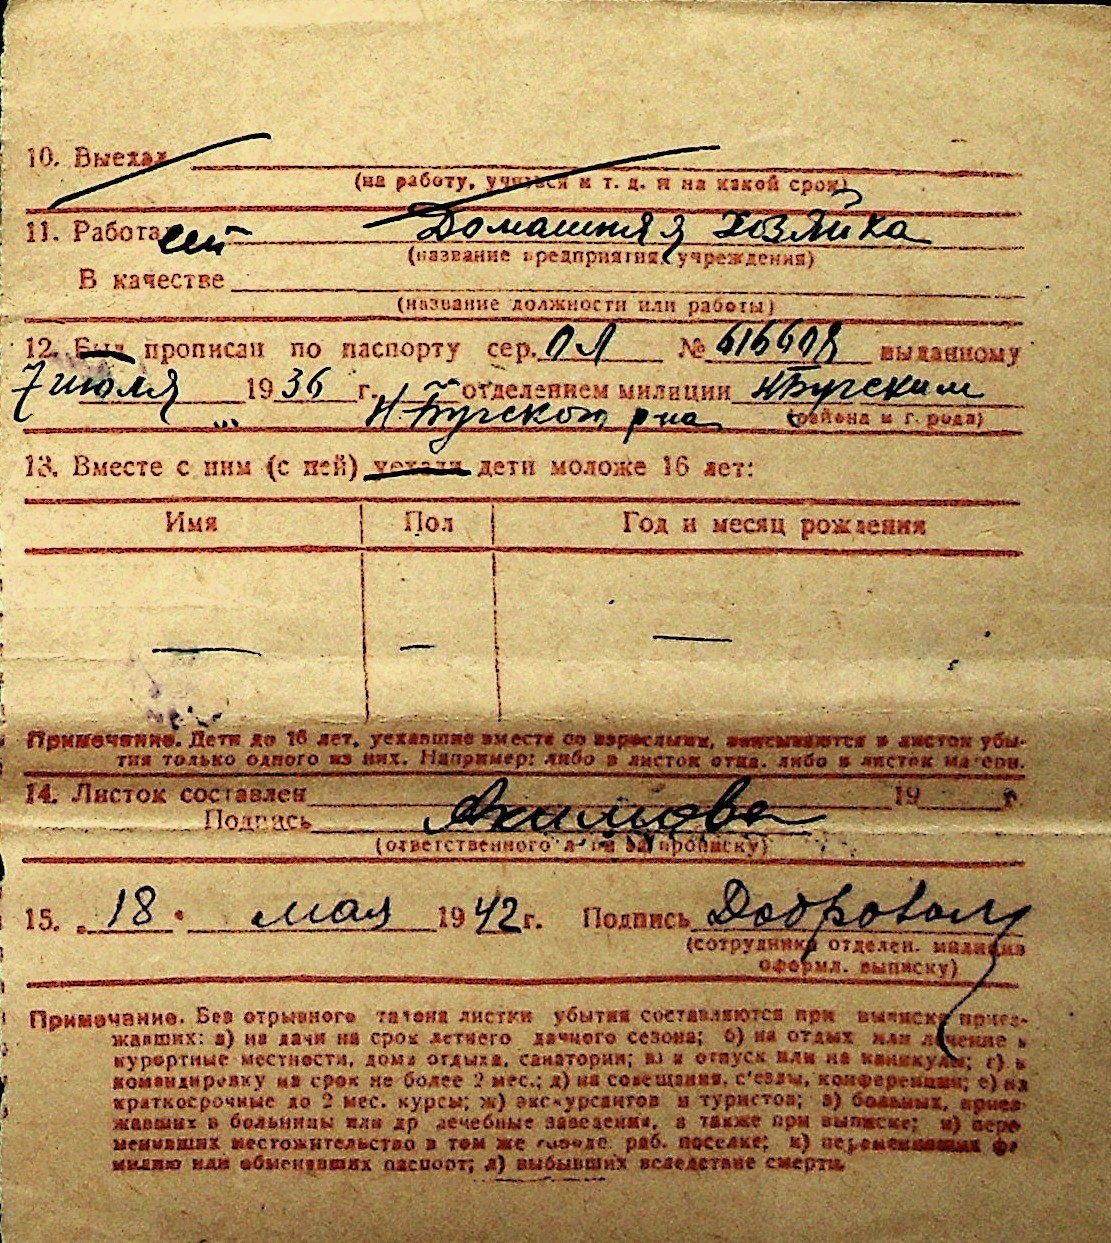 10. Выехал
(на работу, учиться и т. д. и на какой срок)
11. Работа Домашняя хозяйка
(название предприятия, учреждения)
В качестве
(название должности или работы)
12. Был прописан по паспорту сер. № выданному
7 июля 1936 г. отделением милиции
(района и города)
13. Вместе с ним (с ней) уехали дети моложе 16 лет:
Имя Пол Год и месяц рождения
— — —
Примечание. Дети до 16 лет, уехавшие вместе со взрослыми, вписываются в листок убы-
тия только одного из них. Например: либо в листок отца, либо в листок матери.
14. Листок составлен 19 г.
Подпись Акимова
(ответственного лица за прописку)
15. „18“ мая 1942 г. Подпись
(сотрудника отделен. милиции
оформл. выписку)
Примечание. Без отрывного талона листки убытия составляются при выписке приез-
жавших: а) на дачи на срок летнего дачного сезона; б) на отдых или лечение в
курортные местности, дома отдыха, санатории; в) в отпуск или на каникулы; г) в
командировку на срок не более 2 мес.; д) на совещания, с'езды, конференции; е) на
краткосрочные до 2 мес. курсы; ж) экскурсантов и туристов; з) больных, приез-
жавших в больницы или др лечебные заведения, а также при выписке; и) пере-
менивших местожительство в том же городе, раб. поселке; к) переменивших фа-
милию или обменявших паспорт; л) выбывших вследствие смерти.